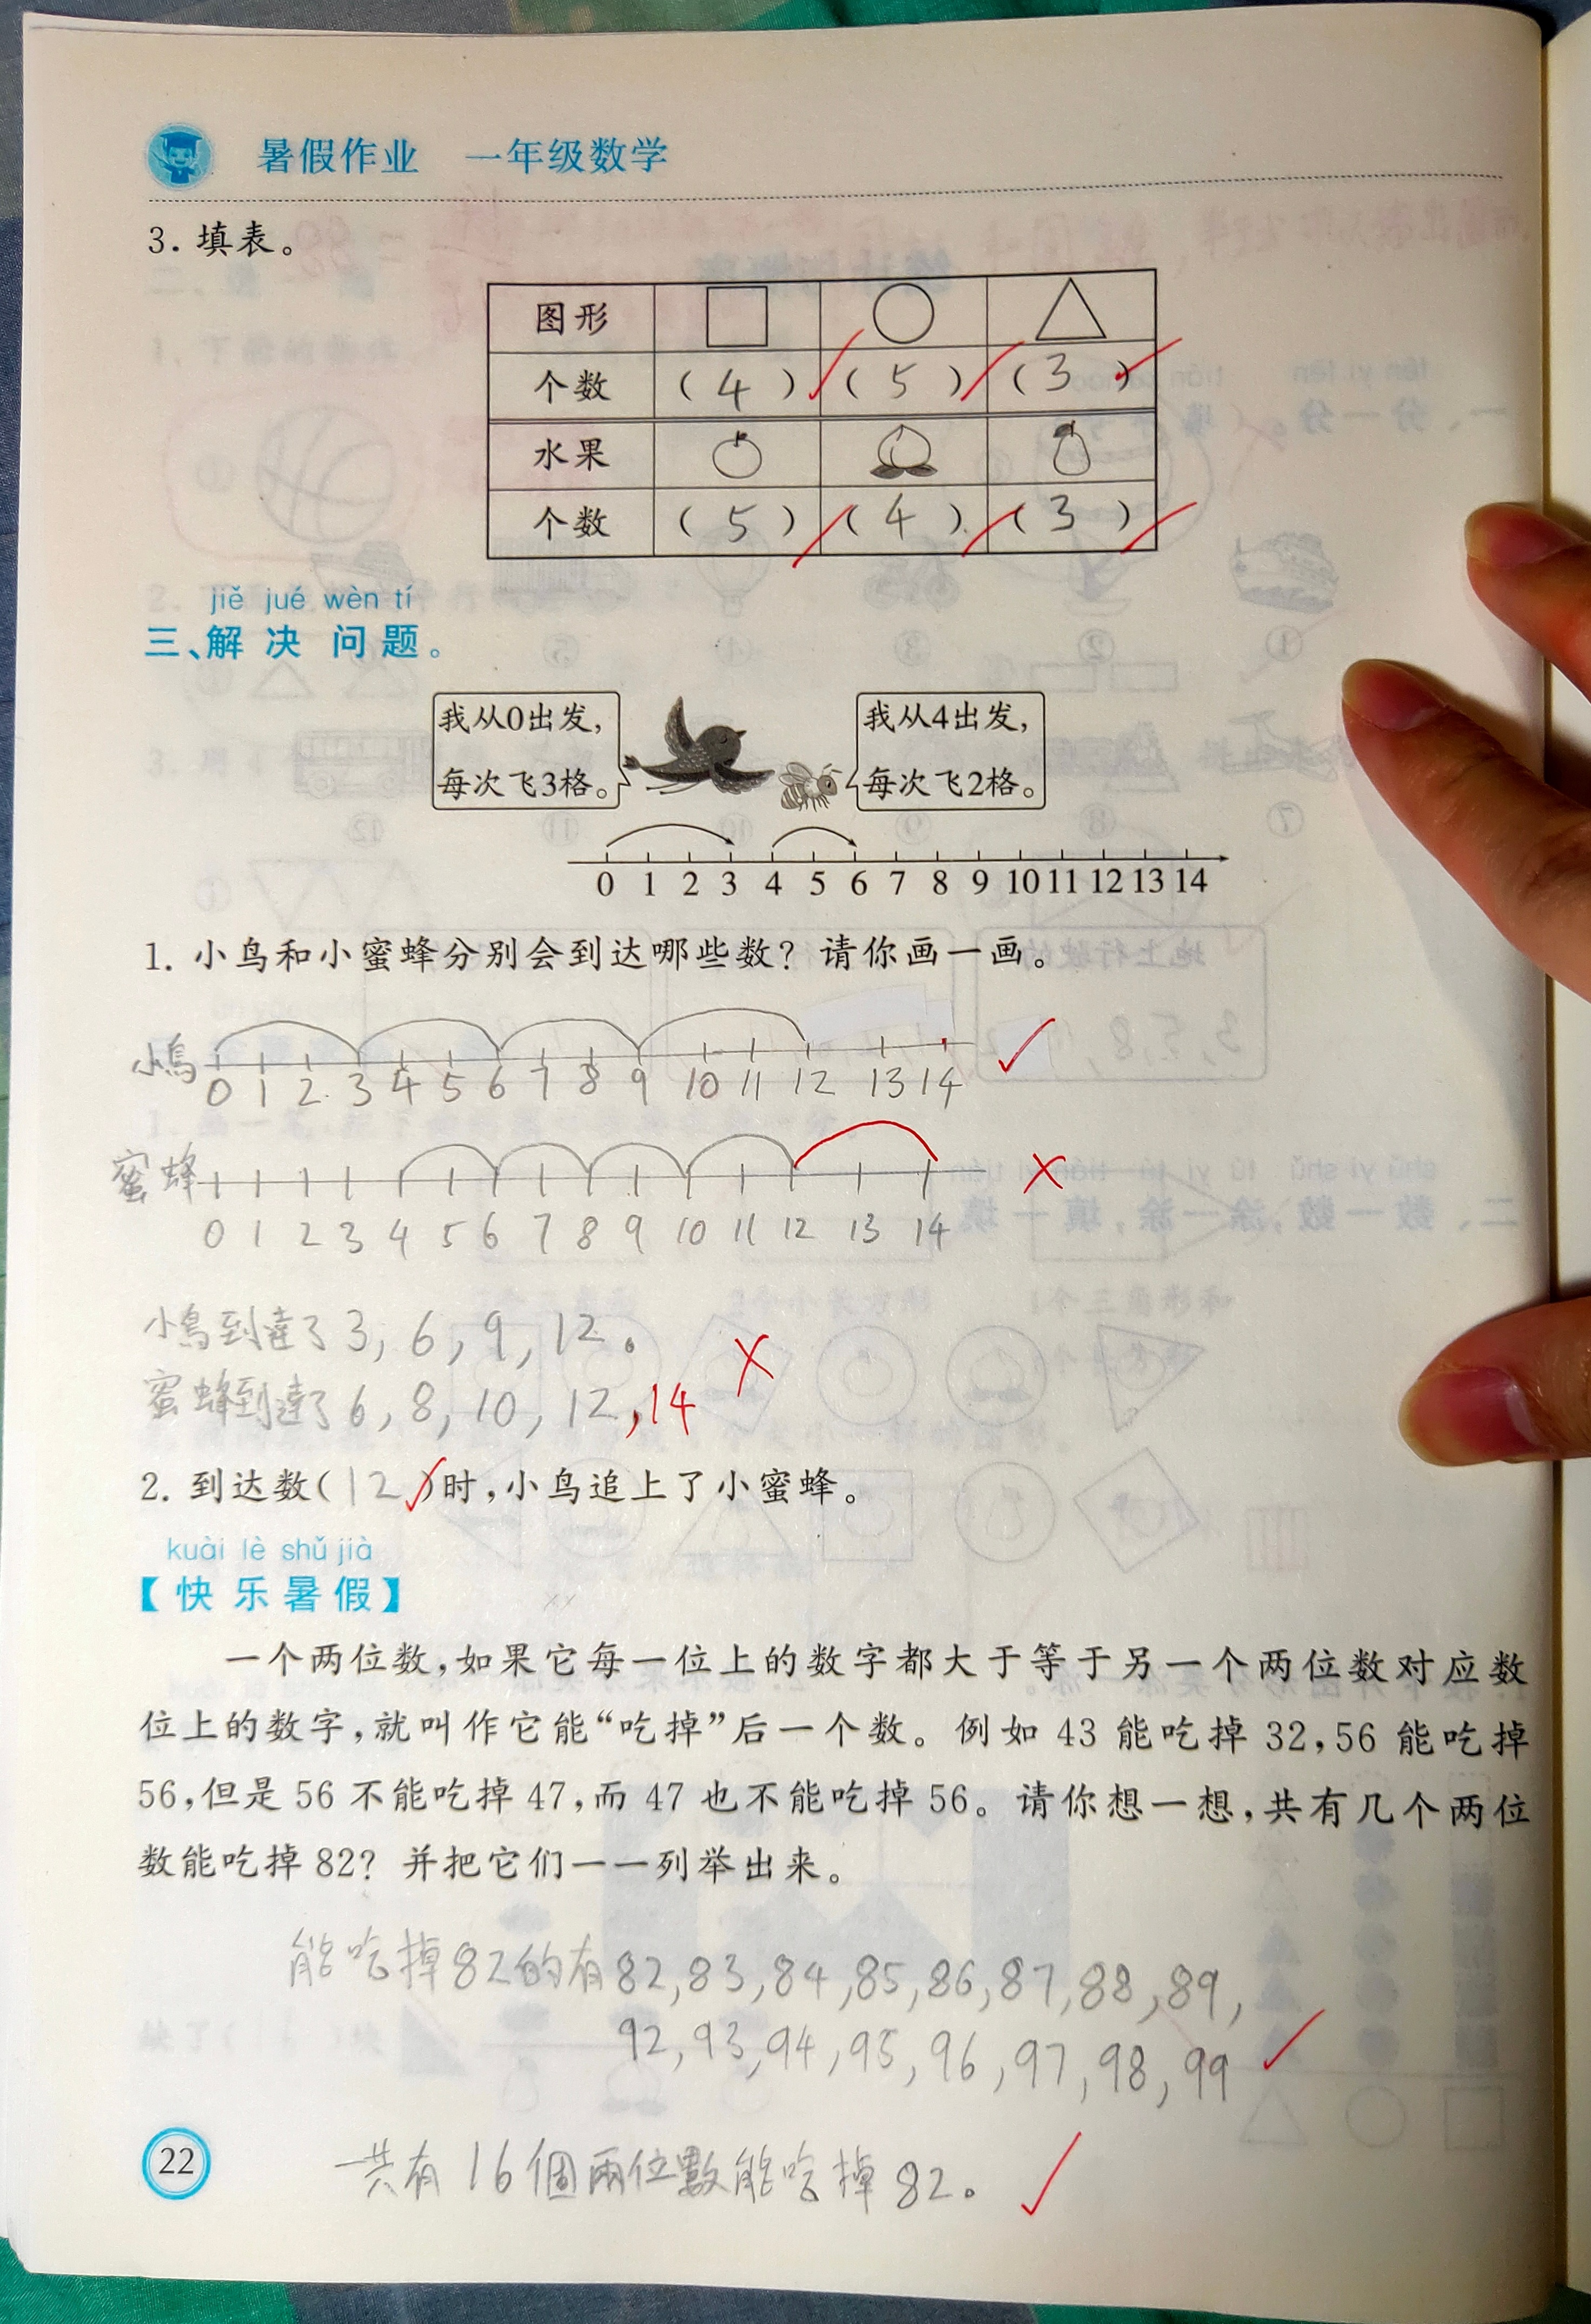 暑假作业 一年级数学
3. 填表。
图形 □ ○ △
个数 (4) (5) (3)
水果
个数 (5) (4) (3)
jiě jué wèn tí
三、解决问题。
我从0出发，
每次飞3格。
我从4出发，
每次飞2格。
0 1 2 3 4 5 6 7 8 9 10 11 12 13 14
1. 小鸟和小蜜蜂分别会到达哪些数？请你画一画。
小鳥
0 1 2 3 4 5 6 7 8 9 10 11 12 13 14
蜜蜂
0 1 2 3 4 5 6 7 8 9 10 11 12 13 14
小鳥到達了3, 6, 9, 12。
蜜蜂到達了6, 8, 10, 12, 14
2. 到达数(12)时，小鸟追上了小蜜蜂。
kuài lè shǔ jià
【快乐暑假】
一个两位数，如果它每一位上的数字都大于等于另一个两位数对应数
位上的数字，就叫作它能“吃掉”后一个数。例如 43 能吃掉 32，56 能吃掉
56，但是 56 不能吃掉 47，而 47 也不能吃掉 56。请你想一想，共有几个两位
数能吃掉 82？并把它们一一列举出来。
能吃掉82的有82,83,84,85,86,87,88,89,
92,93,94,95,96,97,98,99
一共有16個兩位數能吃掉82。
22